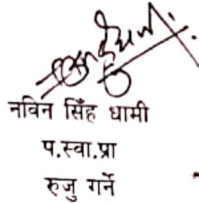 नविन सिँह धामी
प.स्वा.प्रा
रुजु गर्ने